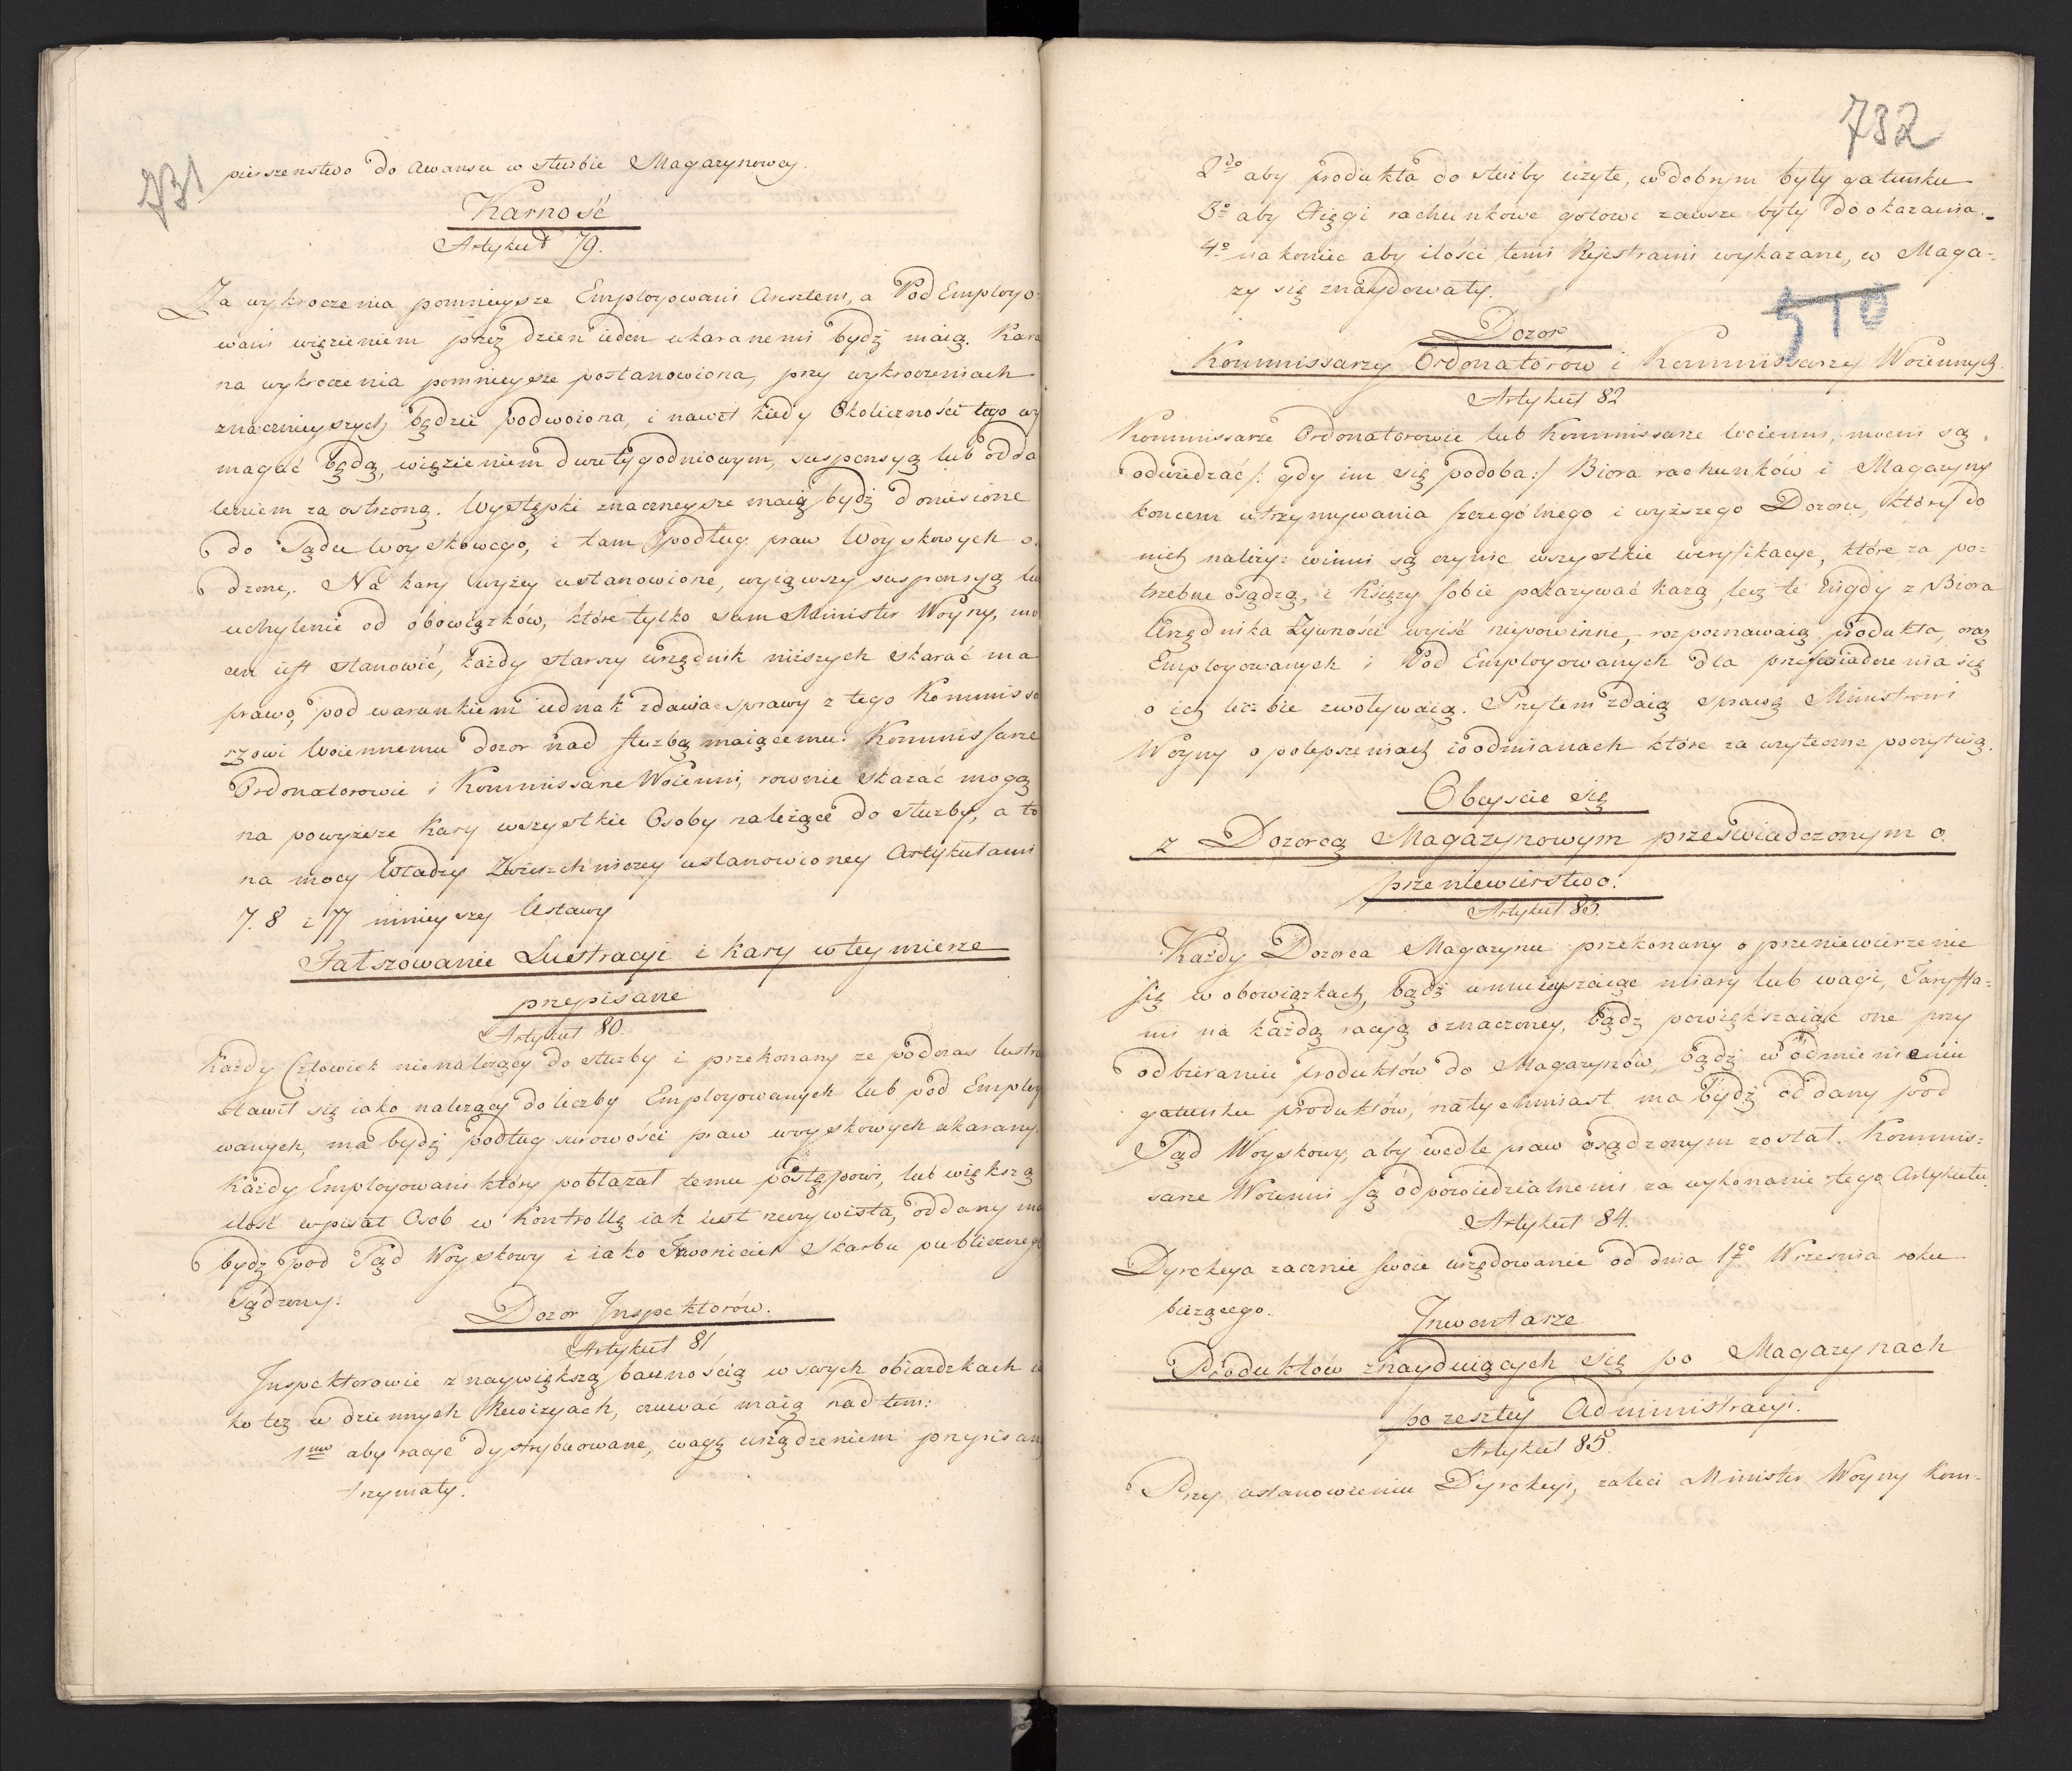 731
pierszenstwo do awansu w służbie Magazynowey.
Karność
Artykuł 79.
Za wykroczenia pomnieysze Employowani Aresztem, a Pod Employo-
wani więzieniem przez dzien ieden ukaranemi bydź maią. Kara
na wykroczenia pomnieysze postanowiona, przy wykroczeniach
znacznieyszych będzie podwoiona, i nawet kiedy Okoliczności tego wy
magać będą, więzieniem dwutygodniowym, suspensyą lub odda
leniem zaostrzoną. Występki znacznieysze maią bydź doniesione
do Sądu Woyskowego, i tam podług praw Woyskowych
dzone. Na kary wyżey ustanowione, wyiąwszy suspensyą lu
uchylenie od obowiązków, które tylko sam Minister Woyny, mo
cen iest stanowić, każdy starszy urzędnik niższych skarać ma
prawo, pod warunkiem iednak zdawia sprawy z tego Kommissa
rzowi Woiennemu dozor nad służbą maiącemu. Kommissarze
Ordonatorowie i Kommissarze Woienni, rownie skazać mogą
na powyższe kary wszystkie Osoby należące do służby, a to
na mocy Władzy Zwierzchniczey ustanowioney Artykułami
7. 8 i 77 ninieyszey Ustawy
Fałszowanie Lustracyi i kary w tey mierze
przepisane
Artykuł 80.
Każdy Człowiek nienależący do służby i przekonany ze podczas lustra
stawił się iako należący do liczby Employowanych lub pod Employ
wanych, ma bydź podług surowości praw woyskowych ukarany.
Każdy Employowani który pobłażał temu postępowi, lub większą
ilość wpisał Osob w Kontrollę iak iest rzeczywista, oddany ma
bydź pod Sąd Woyskowy i iako Trwoniciel Skarbu publicznego
Sądzony.
Dozor Inspektorów.
Artykuł 81
Inspektorowie z naywiększą bacznością w swych obiazdzkach ia
ko też w dziennych Rewizyach, czuwać maią nad tem:
1mo aby racye dystrybuowane, wagę urządzeniem przepisaną
trzymały.
732
2do aby produkta do służby użyte, w dobrym były gatunku
3o aby Xięgi rachunkowe gotowe zawsze były do okazania.
4o nakoniec aby ilości temi Rejestrami wykazane, w Maga-
zy się znaydowały.
510
Dozor
Kommissarzy Ordonatorów i Kommissarzy Woiennych.
Artykuł 82
Kommissarze Ordonatorowie lub Kommissarze Woienni, mocni są
odwiedzać /: gdy im się podoba :/ Biora rachunków i Magazyny
koncem utrzymywania szczególnego i wyższego Dozoru, który do
nich należy: winni są czynić wszystkie weryfikacye, które za po-
trzebne osądzą, i Księgi sobie pokazywać każą, lecz te nigdy z Biora
Urzędnika Żywności wyiść niepowinne, rozpoznawaią produkta, oraz
Employowanych i Pod Employowanych dla przeświadczenia się
o ich liczbie zwoływaią. Przytem zdaią sprawę Ministrowi
Woyny o polepszeniach i o odmianach które za użyteczne poczytuią.
Obeyście się
z Dozorcą Magazynowym przeświadczonym o
przeniewierstwo.
Artykuł 83.
Każdy Dozorca Magazynu przekonany o przeniewierzenie
się w obowiązkach, bądź umnieyszaiąc miary lub wagi, Taryffa-
mi na każdą racyą oznaczoney, bądź powiększaiąc one przy
odbieraniu produktów do Magazynów, bądź w odmienieniu
gatunku produktów, natychmiast ma bydź oddany pod
Sąd Woyskowy, aby wedle praw osądzonym został. Kommis-
sarze Woienni są odpowiedzialnemi za wykonanie tego Artykułu.
Artykuł 84.
Dyrekcya zacznie swoie urzędowanie od dnia 1go Wrzesnia roku
bieżącego.
Inwentarze
Produktów znayduiących się po Magazynach
po zeszłey Administracyi.
Artykuł 85.
Przy ustanowieniu Dyrekcyi, zaleci Minister Woyny Kom-